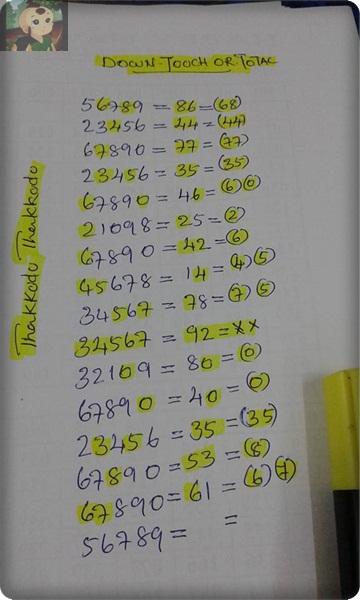 DOWN-TOUCH OR TOTAL
56789 = 86 = (68)
23456 = 44 = (44)
67890 = 77 = (77)
23456 = 35 = (35)
67890 = 46 = (6)(0)
21098 = 25 = (2)
67890 = 42 = (6)
45678 = 14 = (4)(5)
34567 = 78 = (7)(5)
34567 = 92 = xx
32109 = 80 = (0)
67890 = 40 = (0)
23456 = 35 = (35)
67890 = 53 = (8)
67890 = 61 = (6)(7)
56789 = =
Thakkodu Thakkodu